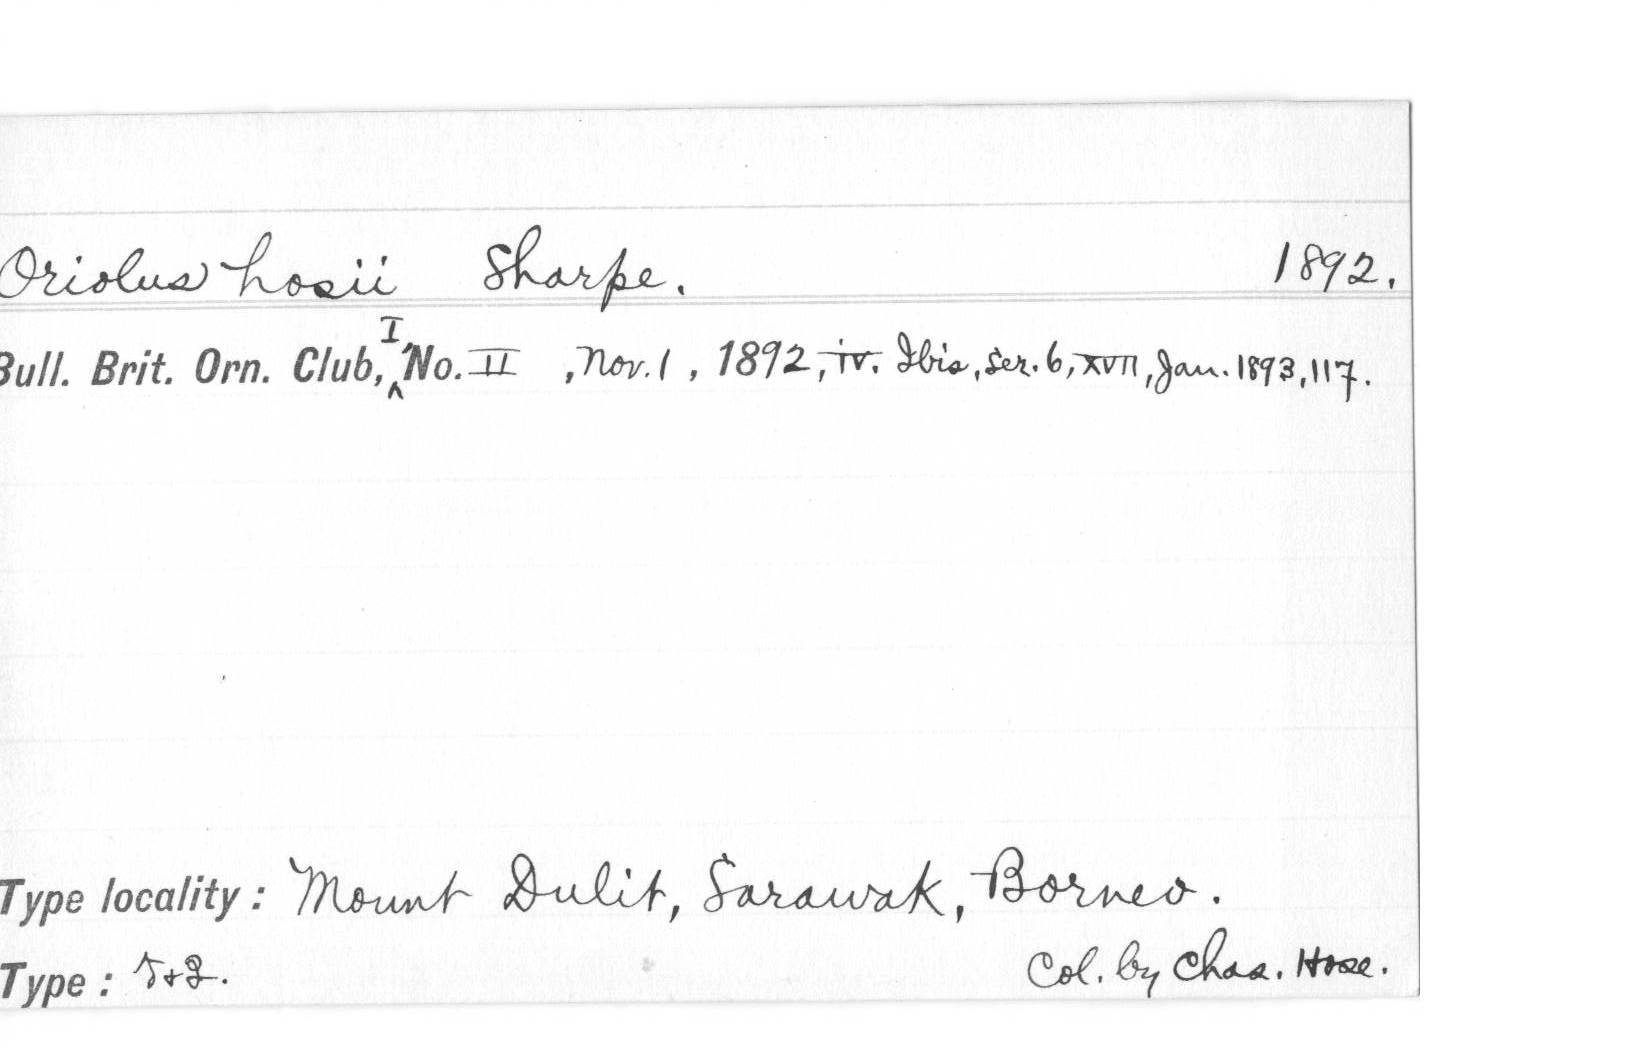 Oriolus hosii Sharpe. 1892.
Bull. Brit. Orn. Club, I, No. II , Nov. 1 , 1892, iv. Ibis, Ser. 6, XVII, Jan. 1893, 117.
Type locality : Mount Dulit, Sarawak, Borneo.
Type : ♂+♀. Col. by Chas. Hose.